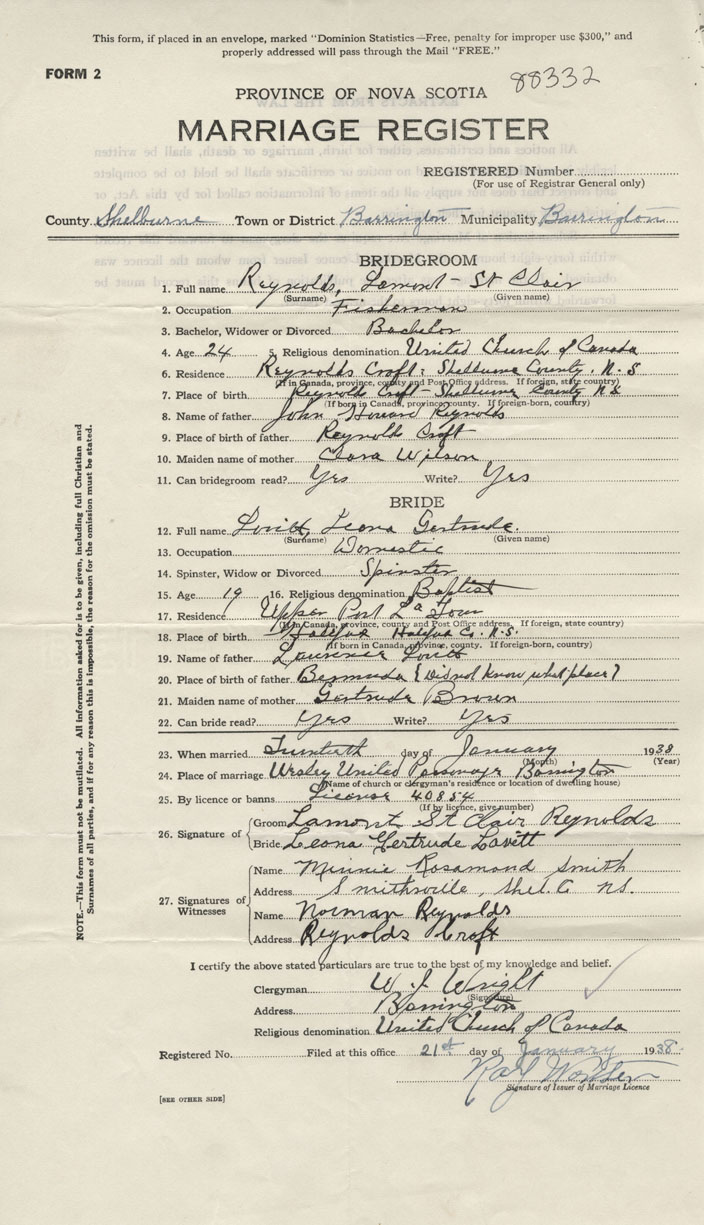 This form, if placed in an envelope, marked "Dominion Statistics—Free, penalty for improper use $300," and
properly addressed will pass through the Mail "FREE."
FORM 2
88332
PROVINCE OF NOVA SCOTIA
MARRIAGE REGISTER
REGISTERED Number
(For use of Registrar General only)
County Shelburne Town or District Barrington Municipality Barrington
BRIDEGROOM
1. Full name Reynolds, Lamont - St Clair
(Surname) (Given name)
2. Occupation Fisherman
3. Bachelor, Widower or Divorced Bachelor
4. Age 24 5. Religious denomination United Church of Canada
6. Residence Reynolds Croft: Shelburne County. N. S
(If in Canada, province, county and Post Office address. If foreign, state country)
7. Place of birth Reynolds Croft - Shelburne County N S
(If born in Canada, province, county. If foreign-born, country)
8. Name of father John Howard Reynolds
9. Place of birth of father Reynolds Croft
10. Maiden name of mother Clara Wilson
11. Can bridegroom read? Yes Write? Yes
BRIDE
12. Full name Lovitt, Leona Gertrude.
(Surname) (Given name)
13. Occupation Domestic
14. Spinster, Widow or Divorced Spinster
15. Age 19 16. Religious denomination Baptist
17. Residence Upper Port La Tour
(If in Canada, province, county and Post Office address. If foreign, state country)
18. Place of birth Halifax Halifax Co. N.S.
(If born in Canada, province, county. If foreign-born, country)
19. Name of father Laurence Lovitt
20. Place of birth of father Bermuda (Did not know what place)
21. Maiden name of mother Gertrude Brown
22. Can bride read? Yes Write? Yes
23. When married Twentieth day of January 1938
(Month) (Year)
24. Place of marriage Wesley United Parsonage Barrington
(Name of church or clergyman's residence or location of dwelling house)
25. By licence or banns License 40854
(If by licence, give number)
26. Signature of Groom Lamont St Clair Reynolds
Bride Leona Gertrude Lovitt
27. Signatures of Witnesses
Name Minnie Rosamond Smith
Address Smithsville, Shel. Co NS.
Name Norman Reynolds
Address Reynolds Croft
I certify the above stated particulars are true to the best of my knowledge and belief.
Clergyman W. J. Wright
(Signature)
Address Barrington
Religious denomination United Church of Canada
Registered No. Filed at this office 21st day of January 1938
Signature of Issuer of Marriage Licence
[SEE OTHER SIDE]
NOTE.—This form must not be mutilated. All information asked for is to be given, including full Christian and
Surnames of all parties, and if for any reason this is impossible, the reason for the omission must be stated.